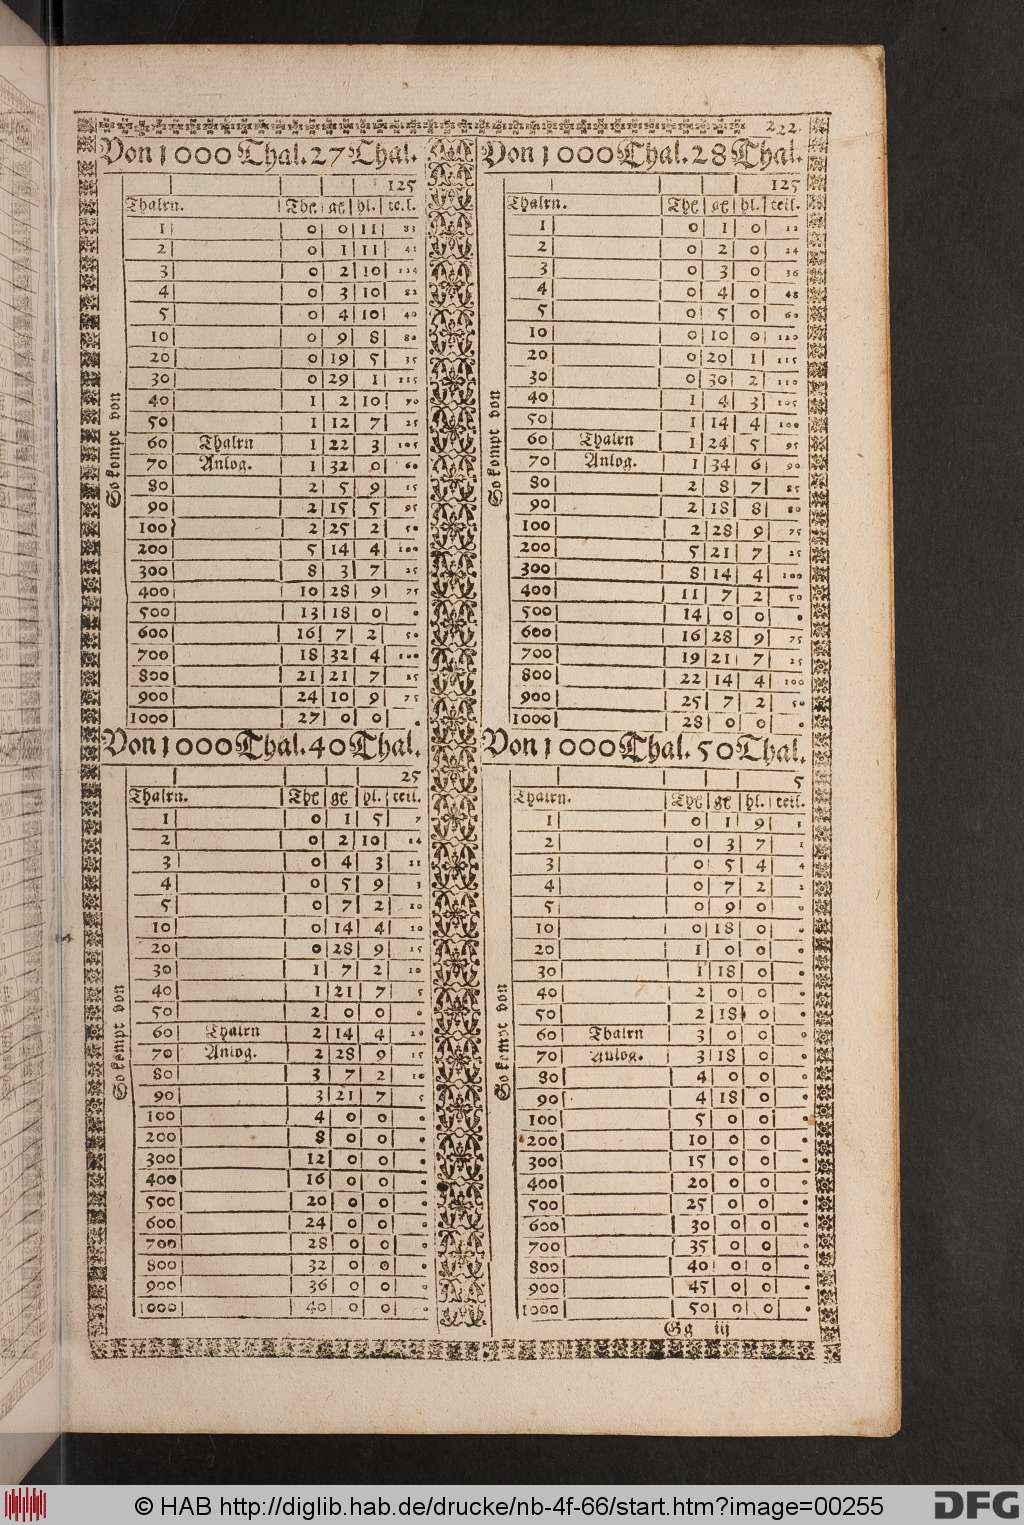 222.
Von 1000 Thal. 27 Thal.
125
Thalrn. Thl gl hl. teil.
1 0 0 11 83
2 0 1 11 41
3 0 2 10 124
4 0 3 10 82
5 0 4 10 40
10 0 9 8 80
20 0 19 5 35
30 0 29 1 115
40 1 2 10 70
50 1 12 7 25
60 Thalrn 1 22 3 105
70 Anlog. 1 32 0 60
80 2 5 9 15
90 2 15 5 95
100 2 25 2 50
200 5 14 4 100
300 8 3 7 25
400 10 28 9 75
500 13 18 0 0
600 16 7 2 50
700 18 32 4 100
800 21 21 7 25
900 24 10 9 75
1000 27 0 0 0
So kompt von
Von 1000 Thal. 28 Thal.
125
Thalrn. Thl gl hl. teil.
1 0 1 0 12
2 0 2 0 24
3 0 3 0 36
4 0 4 0 48
5 0 5 0 60
10 0 10 0 120
20 0 20 1 115
30 0 30 2 110
40 1 4 3 105
50 1 14 4 100
60 Thalrn 1 24 5 95
70 Anlog. 1 34 6 90
80 2 8 7 85
90 2 18 8 80
100 2 28 9 75
200 5 21 7 25
300 8 14 4 100
400 11 7 2 50
500 14 0 0 0
600 16 28 9 75
700 19 21 7 25
800 22 14 4 100
900 25 7 2 50
1000 28 0 0 0
So kompt von
Von 1000 Thal. 40 Thal.
25
Thalrn. Thl gl hl. teil.
1 0 1 5 7
2 0 2 10 14
3 0 4 3 21
4 0 5 9 3
5 0 7 2 10
10 0 14 4 20
20 0 28 9 15
30 1 7 2 10
40 1 21 7 5
50 2 0 0 0
60 Thalrn 2 14 4 20
70 Anlog. 2 28 9 15
80 3 7 2 10
90 3 21 7 5
100 4 0 0 0
200 8 0 0 0
300 12 0 0 0
400 16 0 0 0
500 20 0 0 0
600 24 0 0 0
700 28 0 0 0
800 32 0 0 0
900 36 0 0 0
1000 40 0 0 0
So kompt von
Von 1000 Thal. 50 Thal.
5
Thalrn. Thl gl hl. teil.
1 0 1 9 3
2 0 3 7 1
3 0 5 4 4
4 0 7 2 2
5 0 9 0 0
10 0 18 0 0
20 1 0 0 0
30 1 18 0 0
40 2 0 0 0
50 2 18 0 0
60 Thalrn 3 0 0 0
70 Anlog. 3 18 0 0
80 4 0 0 0
90 4 18 0 0
100 5 0 0 0
200 10 0 0 0
300 15 0 0 0
400 20 0 0 0
500 25 0 0 0
600 30 0 0 0
700 35 0 0 0
800 40 0 0 0
900 45 0 0 0
1000 50 0 0 0
So kompt von
Gg iij
© HAB http://diglib.hab.de/drucke/nb-4f-66/start.htm?image=00255
DFG